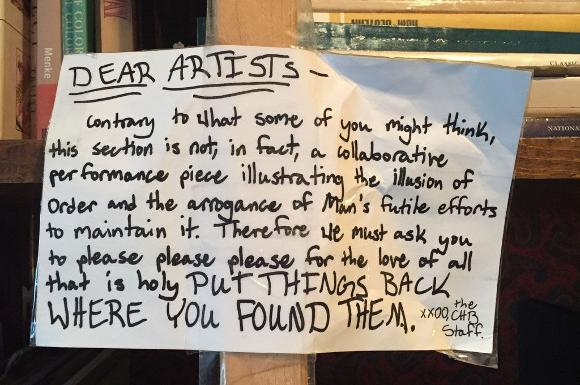 DEAR ARTISTS -
Contrary to what some of you might think,
this section is not, in fact, a collaborative
performance piece illustrating the illusion of
Order and the arrogance of Man's futile efforts
to maintain it. Therefore we must ask you
to please please please for the love of all
that is holy PUT THINGS BACK
WHERE YOU FOUND THEM.
xxoo, the
CHB
Staff.
Menke
COLOR
CLASSIC
NATIONA